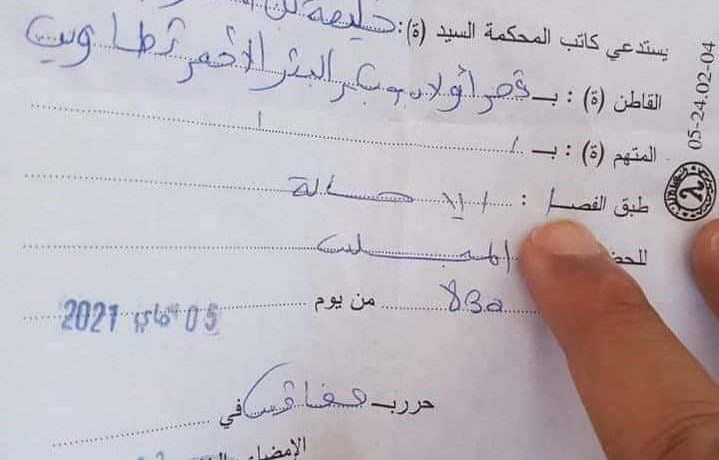 يستدعي كاتب المحكمة السيد (ة): خليفة بن
القاطن (ة) : بـ قصر أولاد البئر الأحمر تطاوين
المتهم (ة) : بـ /
طبق الفصل : الإحالة
للحضور
8 من يوم 05 ماي 2021
حرر بـ صفاقس في
الإمضاء
05-24.02-04
2